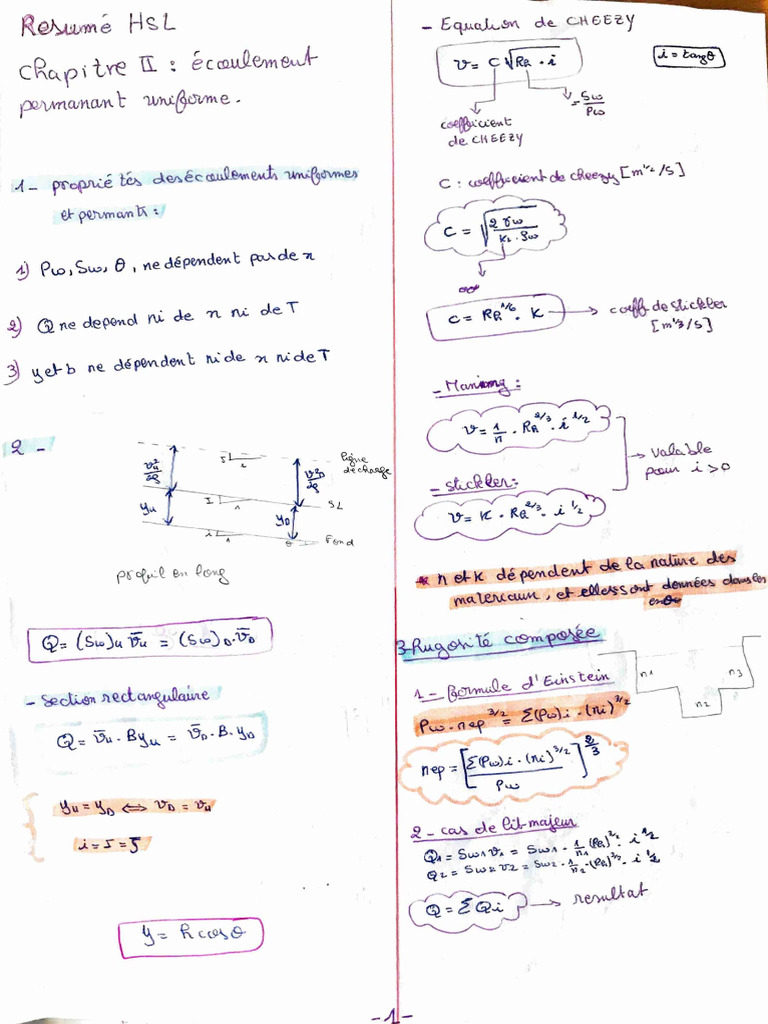 Resumé HSL
chapitre II : écoulement
permanant uniforme.
1- propriétés des écoulements uniformes
et permants :
1) Pω, Sω, θ, ne dépendent pas de x
2) Q ne depend ni de x ni de T
3) y et b ne dépendent ni de x ni de T
2 -
ligne
de charge
v²u/2g
v²D/2g
J
i
yu
I
1
yD
SL
i
1
θ
Fond
profil en long
Q = (Sω)u v̅u = (Sω)D . v̅D
- section rectangulaire
Q = v̅u . B yu = v̅D . B . yD
yu = yD ⟺ vD = vu
i = I = J
y = h cos θ
- Equation de CHEEZY
v = C √(Rh . i)
i = tang θ
= Sω/Pω
coefficient
de CHEEZY
C : coefficient de cheezy [m^1/2 /s]
C = √(2 γω / k₂ . ϱω)
C = Rh^1/6 . K → coeff de stickler
[m^1/3 /s]
- Maning :
v = 1/n . Rh^2/3 . i^1/2
→ valable
pour i > 0
- stickler :
v = K . Rh^2/3 . i^1/2
* n et k dépendent de la nature des
materiaux, et elles sont données dans les
3- Rugosité composée
n1
n2
n3
1 - formule d'Einstein
Pω . nep^3/2 = Σ(Pω)i . (ni)^3/2
nep = [Σ(Pω)i . (ni)^3/2 / Pω]^2/3
2 - cas de lit-majeur
Q1 = Sω1 v1 = Sω1 . 1/n1 (Rh)^2/3 . i^1/2
Q2 = Sω2 v2 = Sω2 . 1/n2 . (Rh)^2/3 . i^1/2
Q = Σ Qi → resultat
-1-